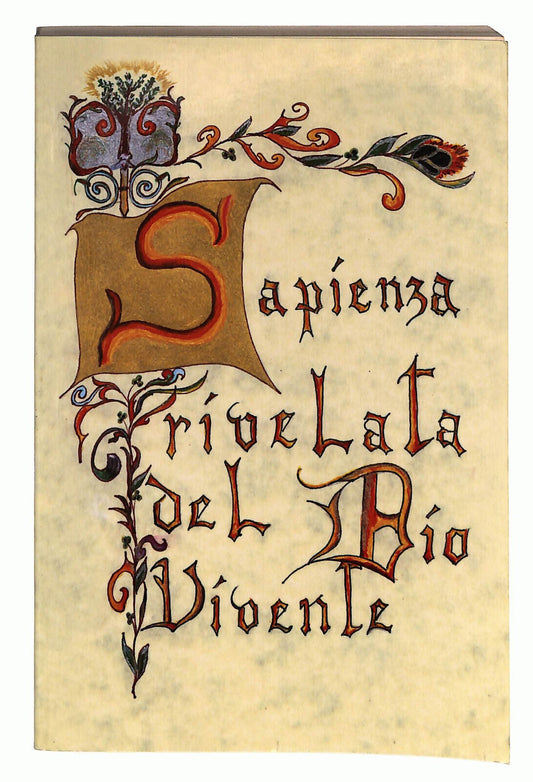 Sapienza
rivelata
del Dio
Vivente